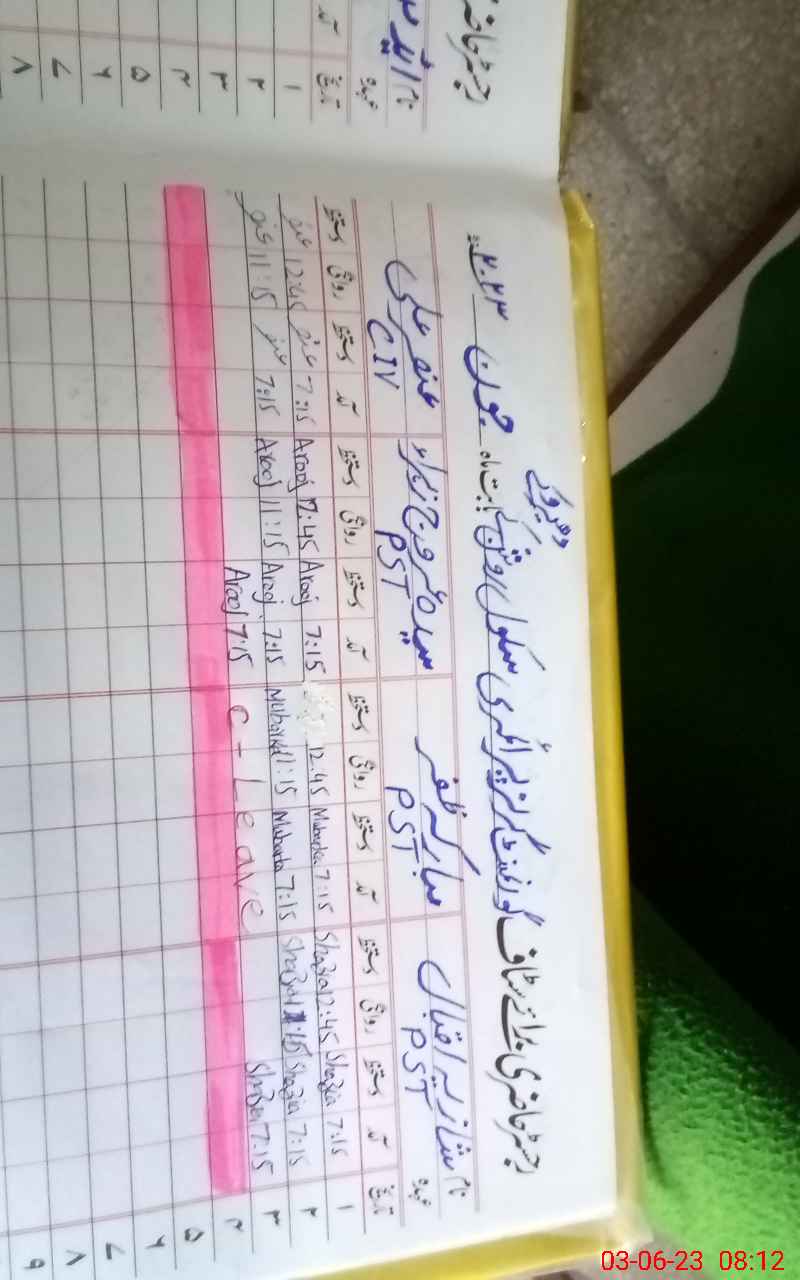 رجسٹر حاضری برائے سٹاف گورنمنٹ گرلز پرائمری سکول بابت ماہ جون ۲۰۲۳ء
نام شازیہ اقبال مبارکہ ظفر سیدہ عروج زہراء عنصر علی
عہدہ PST PST PST CIV
تاریخ آمد دستخط روانگی دستخط آمد دستخط روانگی دستخط آمد دستخط روانگی دستخط آمد دستخط روانگی دستخط
۱ 7:15 Shazia 12:45 Shazia 7:15 Mubarka 12:45 7:15 Arooj 12:45 Arooj 7:15 12:45
۲ 7:15 Shazia 11:15 Shazia 7:15 Mubarka 11:15 Mubarka 7:15 Arooj 11:15 Arooj 7:15 11:15
۳ 7:15 Shazia C-Leave 7:15 Arooj
۴
۵
۶
۷
۸
۹
رجسٹر حاضر
نام
عہدہ
تاریخ آمد
۱
۲
۳
۴
۵
۶
۷
۸
03-06-23 08:12